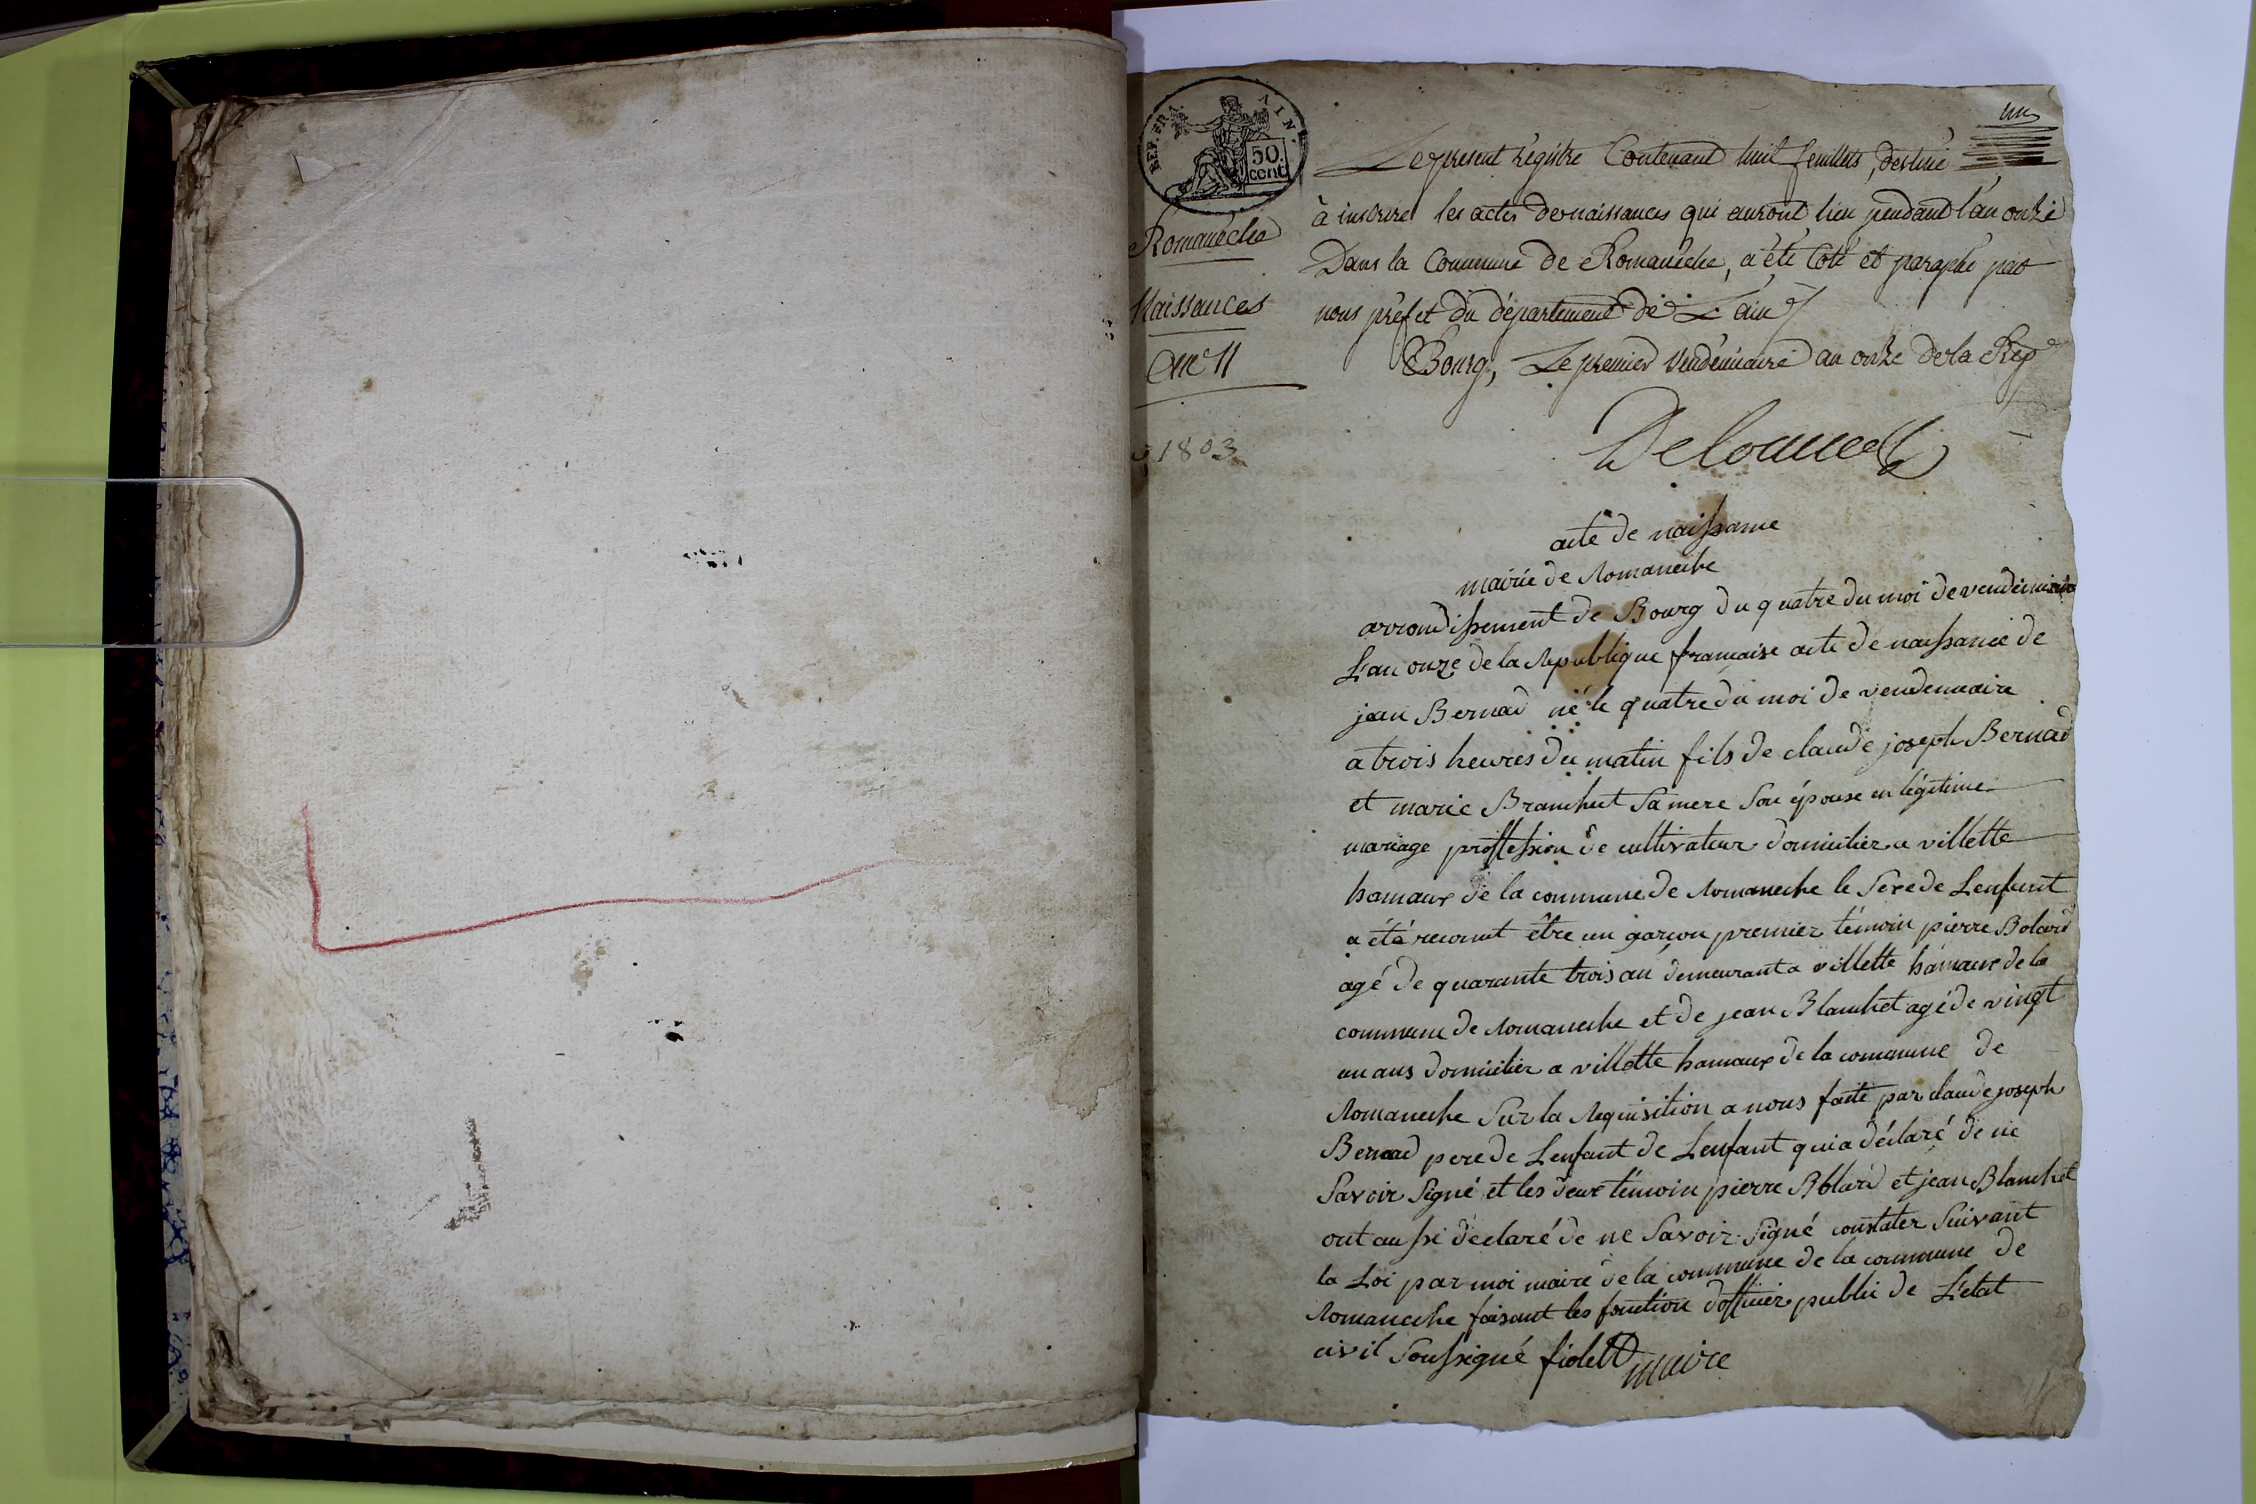 un
REP. FRA. AIN.
50
cent
Le present Régistre Contenant huit feuillets, destiné
à inscrire les actes de naissances qui auront lieu pendant l'an onze
Romanêche
Dans la Commune de Romanêche, a été Coté et paraphé par
nous préfet du département de L'ain
Naissances
Bourg, Le premier Vendémiaire an onze de la Rep
an 11
1803
acte de naissance
mairie de Romaneche
arrondissement de Bourg du quatre du moi de vendemiaire
L'an onze de la Republique francaise acte de naissance de
jean Bernad né le quatre du moi de vendemaire
a trois heures du matin fils de claude joseph Bernad
et marie Branchut Sa mere Son épouse en légitime
mariage proffession de cultivateur domicilier a villette
hamaux de la commune de Romaneche le Sexe de Lenfant
a été reconut être un garçon premier témoin pierre Bolard
agé de quarante trois an demeurant a villette hamaux de la
commune de Romaneche et de jean Blanchet agé de vingt
un ans domicilier a villette hamaux de la commune de
Romaneche Sur la Requisition a nous faite par claude joseph
Bernad pere de Lenfant de Lenfant qui a déclaré de ne
Savoir Signé et les deux témoin pierre Bolard et jean Blanchet
ont aussi déclaré de ne Savoir Signé constater Suivant
la Loi par moi maire de la commune de la commune de
Romaneche faisant les fonction dofficier public de L'etat
civil Soussigné fiolett maire